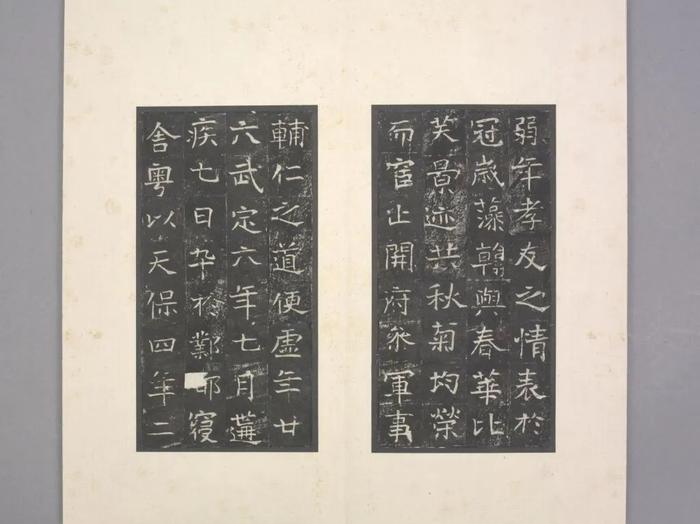 弱年孝友之情表於
冠歲藻翰與春華比
美景迹共秋菊均榮
而官止開府參軍事
輔仁之道便虛年廿
六武定六年七月遘
疾七日卒於鄴都寢
舍粵以天保四年二